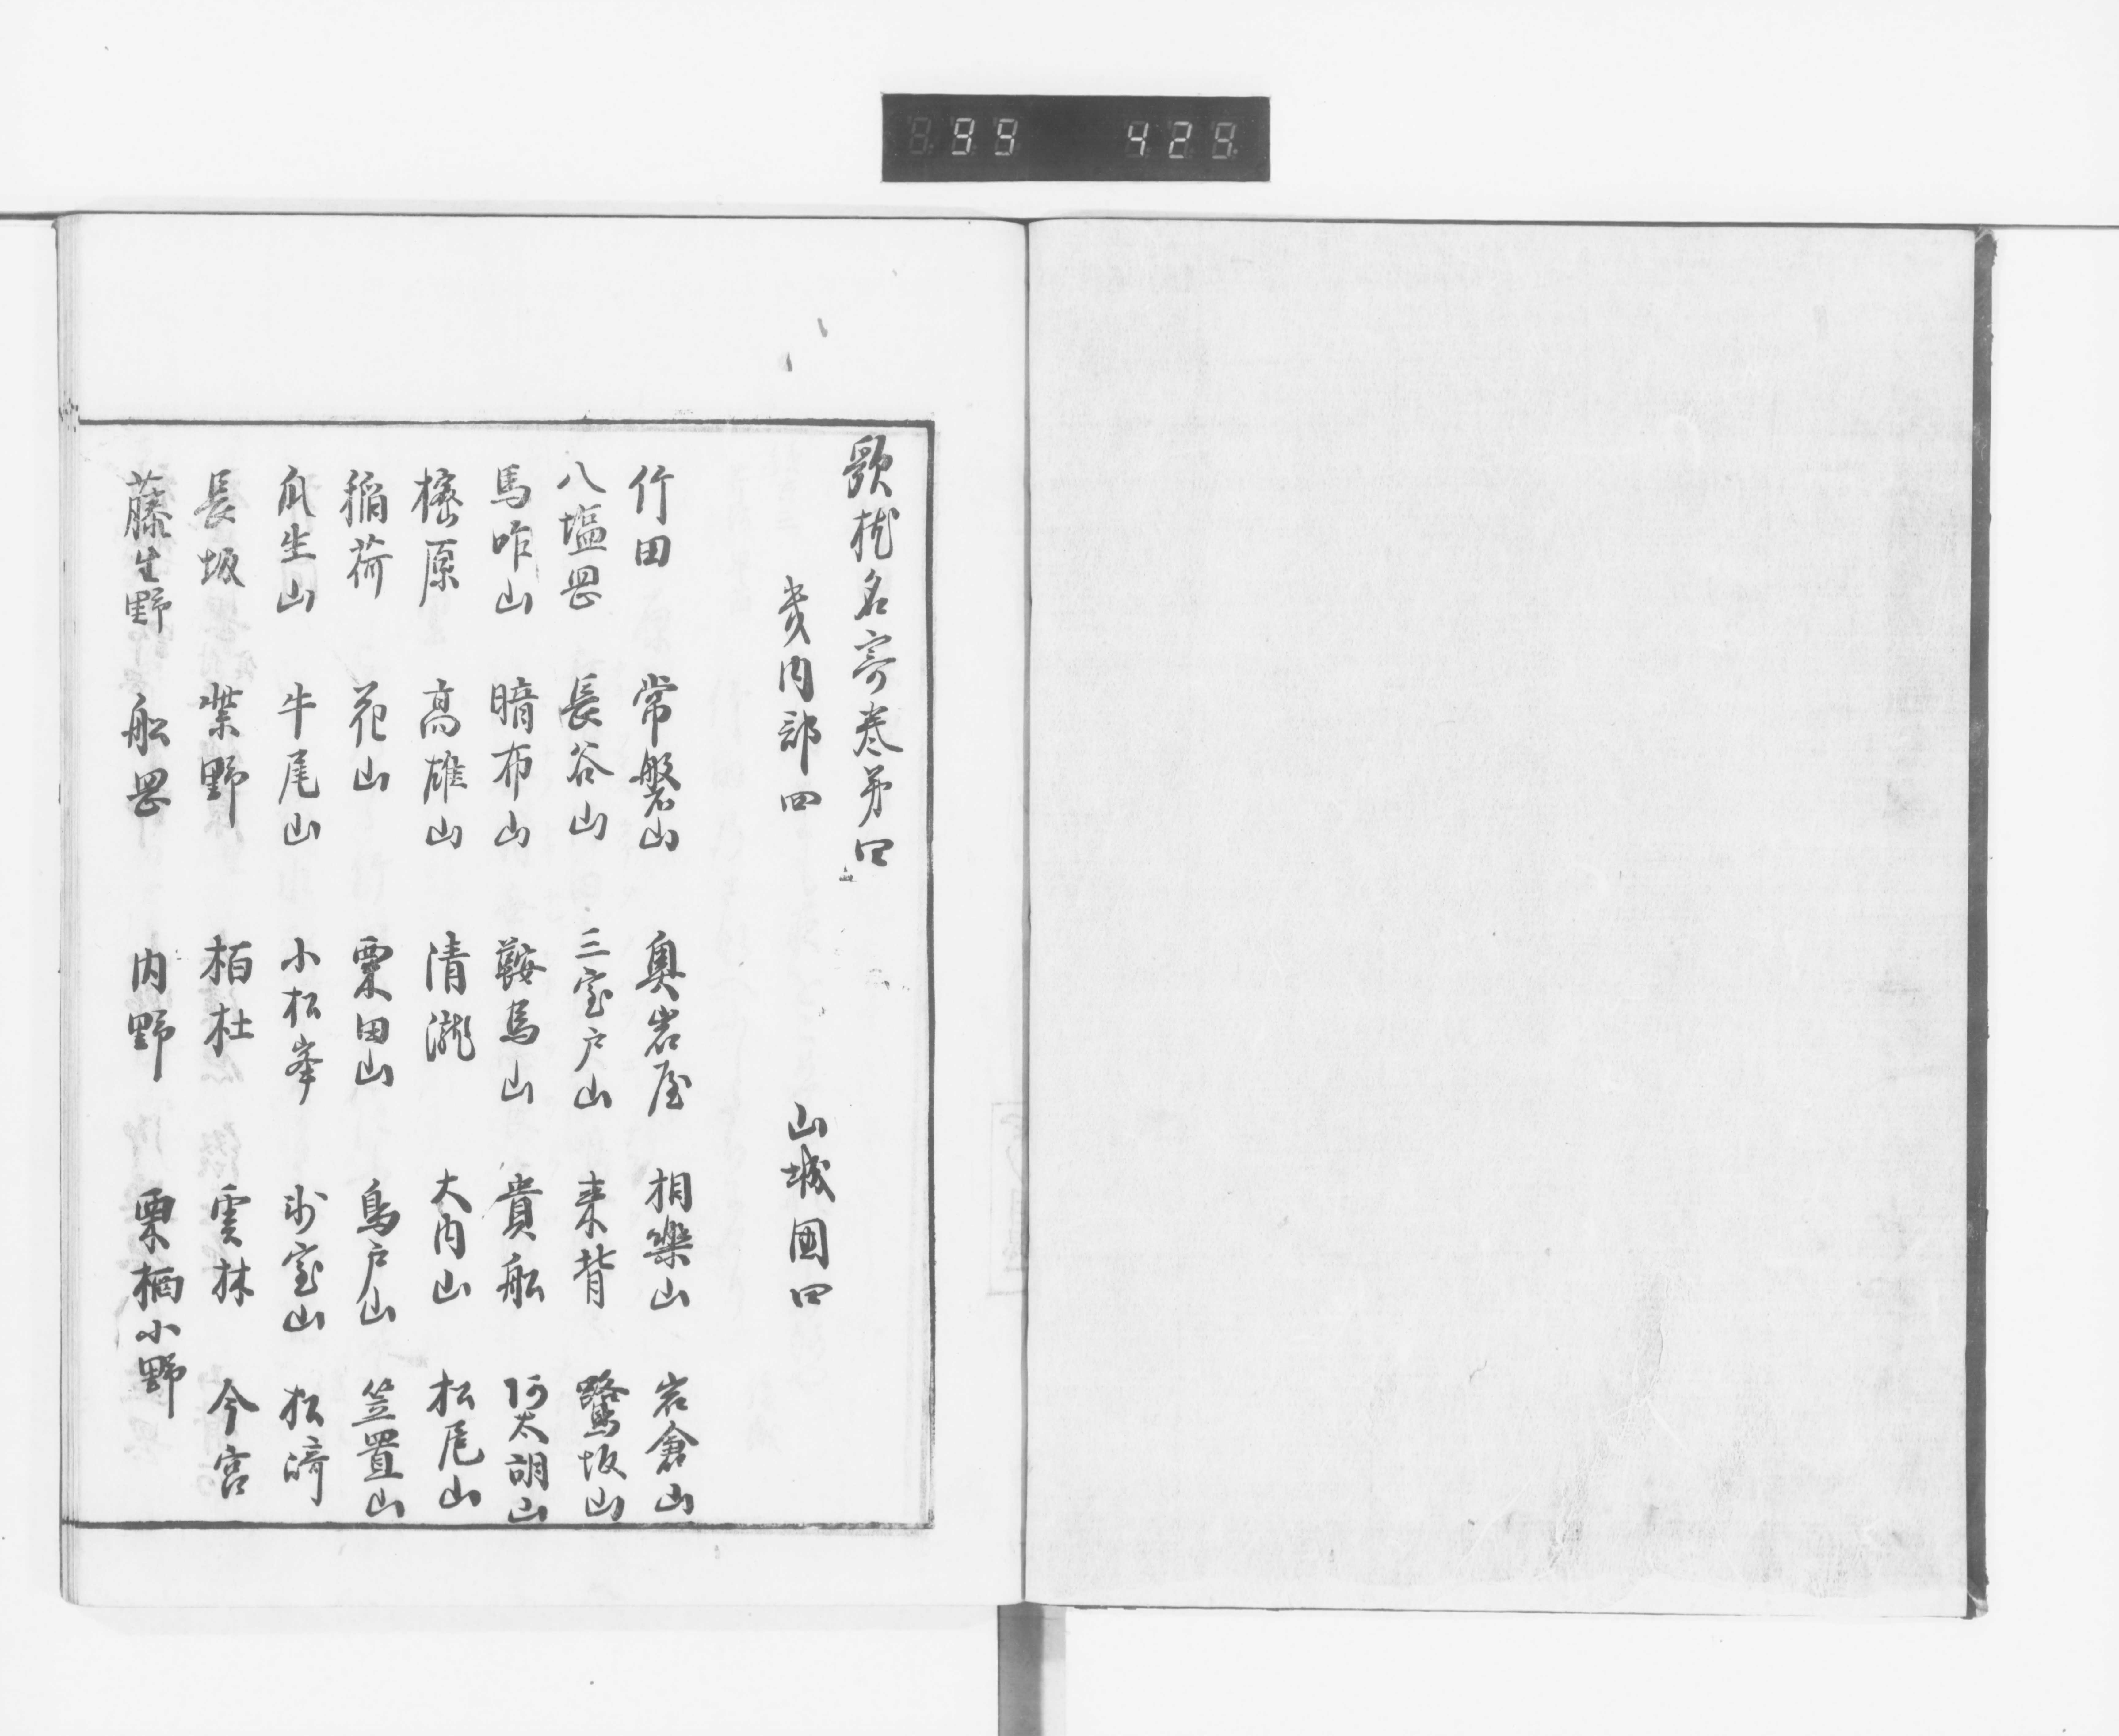 99 429
歌枕名寄巻第四
畿内部四 山城國四
竹田 常磐山 奥岩屋 相樂山 岩倉山
八塩岡 長谷山 三室戸山 来背 鷺坂山
馬咋山 暗布山 鞍馬山 貴舩 阿太胡山
樒原 高雄山 清瀧 大内山 松尾山
稲荷 花山 粟田山 鳥戸山 笠置山
瓜生山 牛尾山 小松峯 氷室山 松﨑
長坂 紫野 栢杜 雲林 今宮
藤生野 舩岡 内野 栗栖小野